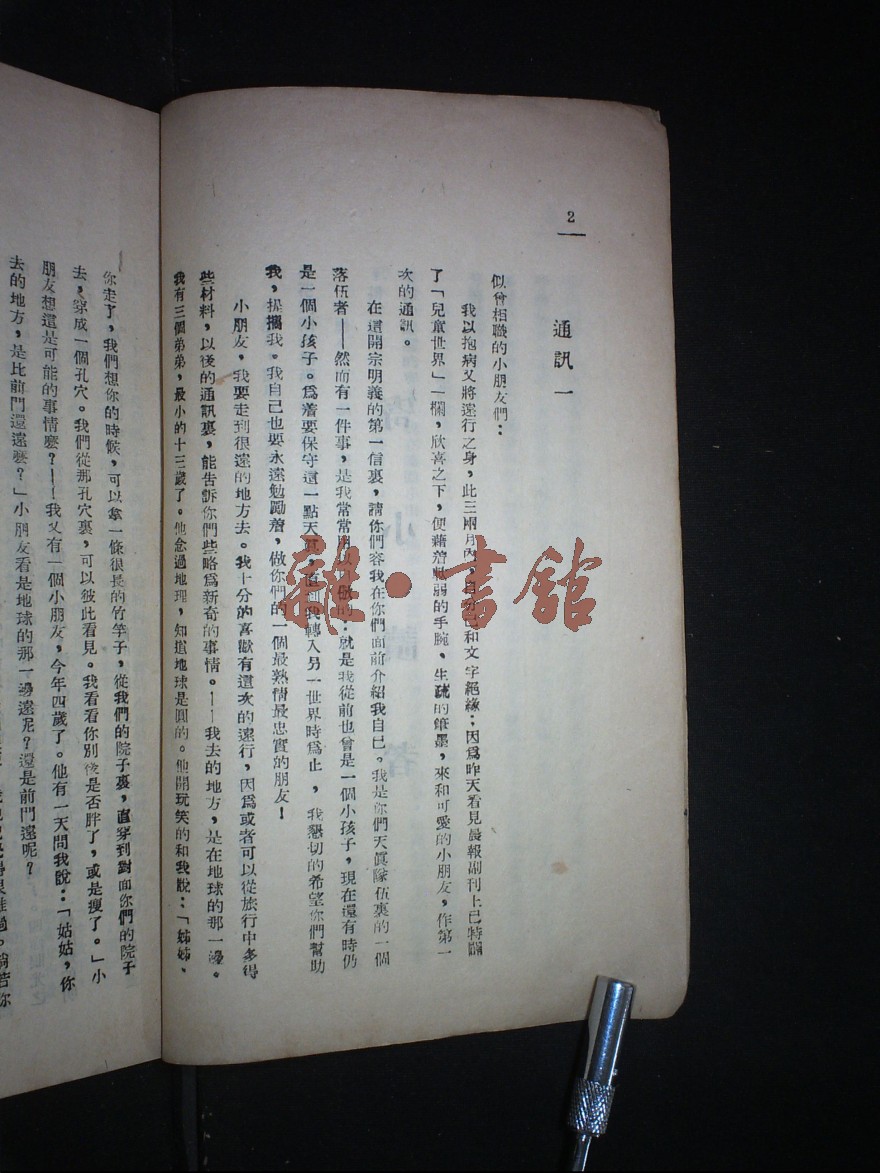 2
通訊一
似曾相職的小朋友們：
我以抱病又將遠行之身，此三兩月內，自分已和文字絕緣；因爲昨天看見晨報副刊上已特闢
了「兒童世界」一欄，欣喜之下，便藉着軟弱的手腕，生疏的筆墨，來和可愛的小朋友，作第一
次的通訊。
在這開宗明義的第一信裏，請你們容我在你們面前介紹我自己。我是你們天眞隊伍裏的一個
落伍者——然而有一件事，是我常常用以自傲的：就是我從前也曾是一個小孩子，現在還有時仍
是一個小孩子。爲着要保守這一點天眞，直到我轉入另一世界時爲止，我懇切的希望你們幫助
我，提攜我。我自己也要永遠勉勵着，做你們的一個最熱情最忠實的朋友！
小朋友，我要走到很遠的地方去。我十分的喜歡有這次的遠行，因爲或者可以從旅行中多得
些材料，以後的通訊裏，能告訴你們些略爲新奇的事情。——我去的地方，是在地球的那一邊。
我有三個弟弟，最小的十三歲了。他念過地理，知道地球是圓的。他開玩笑的和我說：「姊姊，
你走了，我們想你的時候，可以拿一條很長的竹竿子，從我們的院子裏，直穿到對面你們的院子
去，穿成一個孔穴。我們從那孔穴裏，可以彼此看見。我看看你別後是否胖了，或是瘦了。」小
朋友想這是可能的事情麽？——我又有一個小朋友，今年四歲了。他有一天問我說：「姑姑，你
去的地方，是比前門還遠麽？」小朋友看是地球的那一邊遠呢？還是前門遠呢？
雜·書館